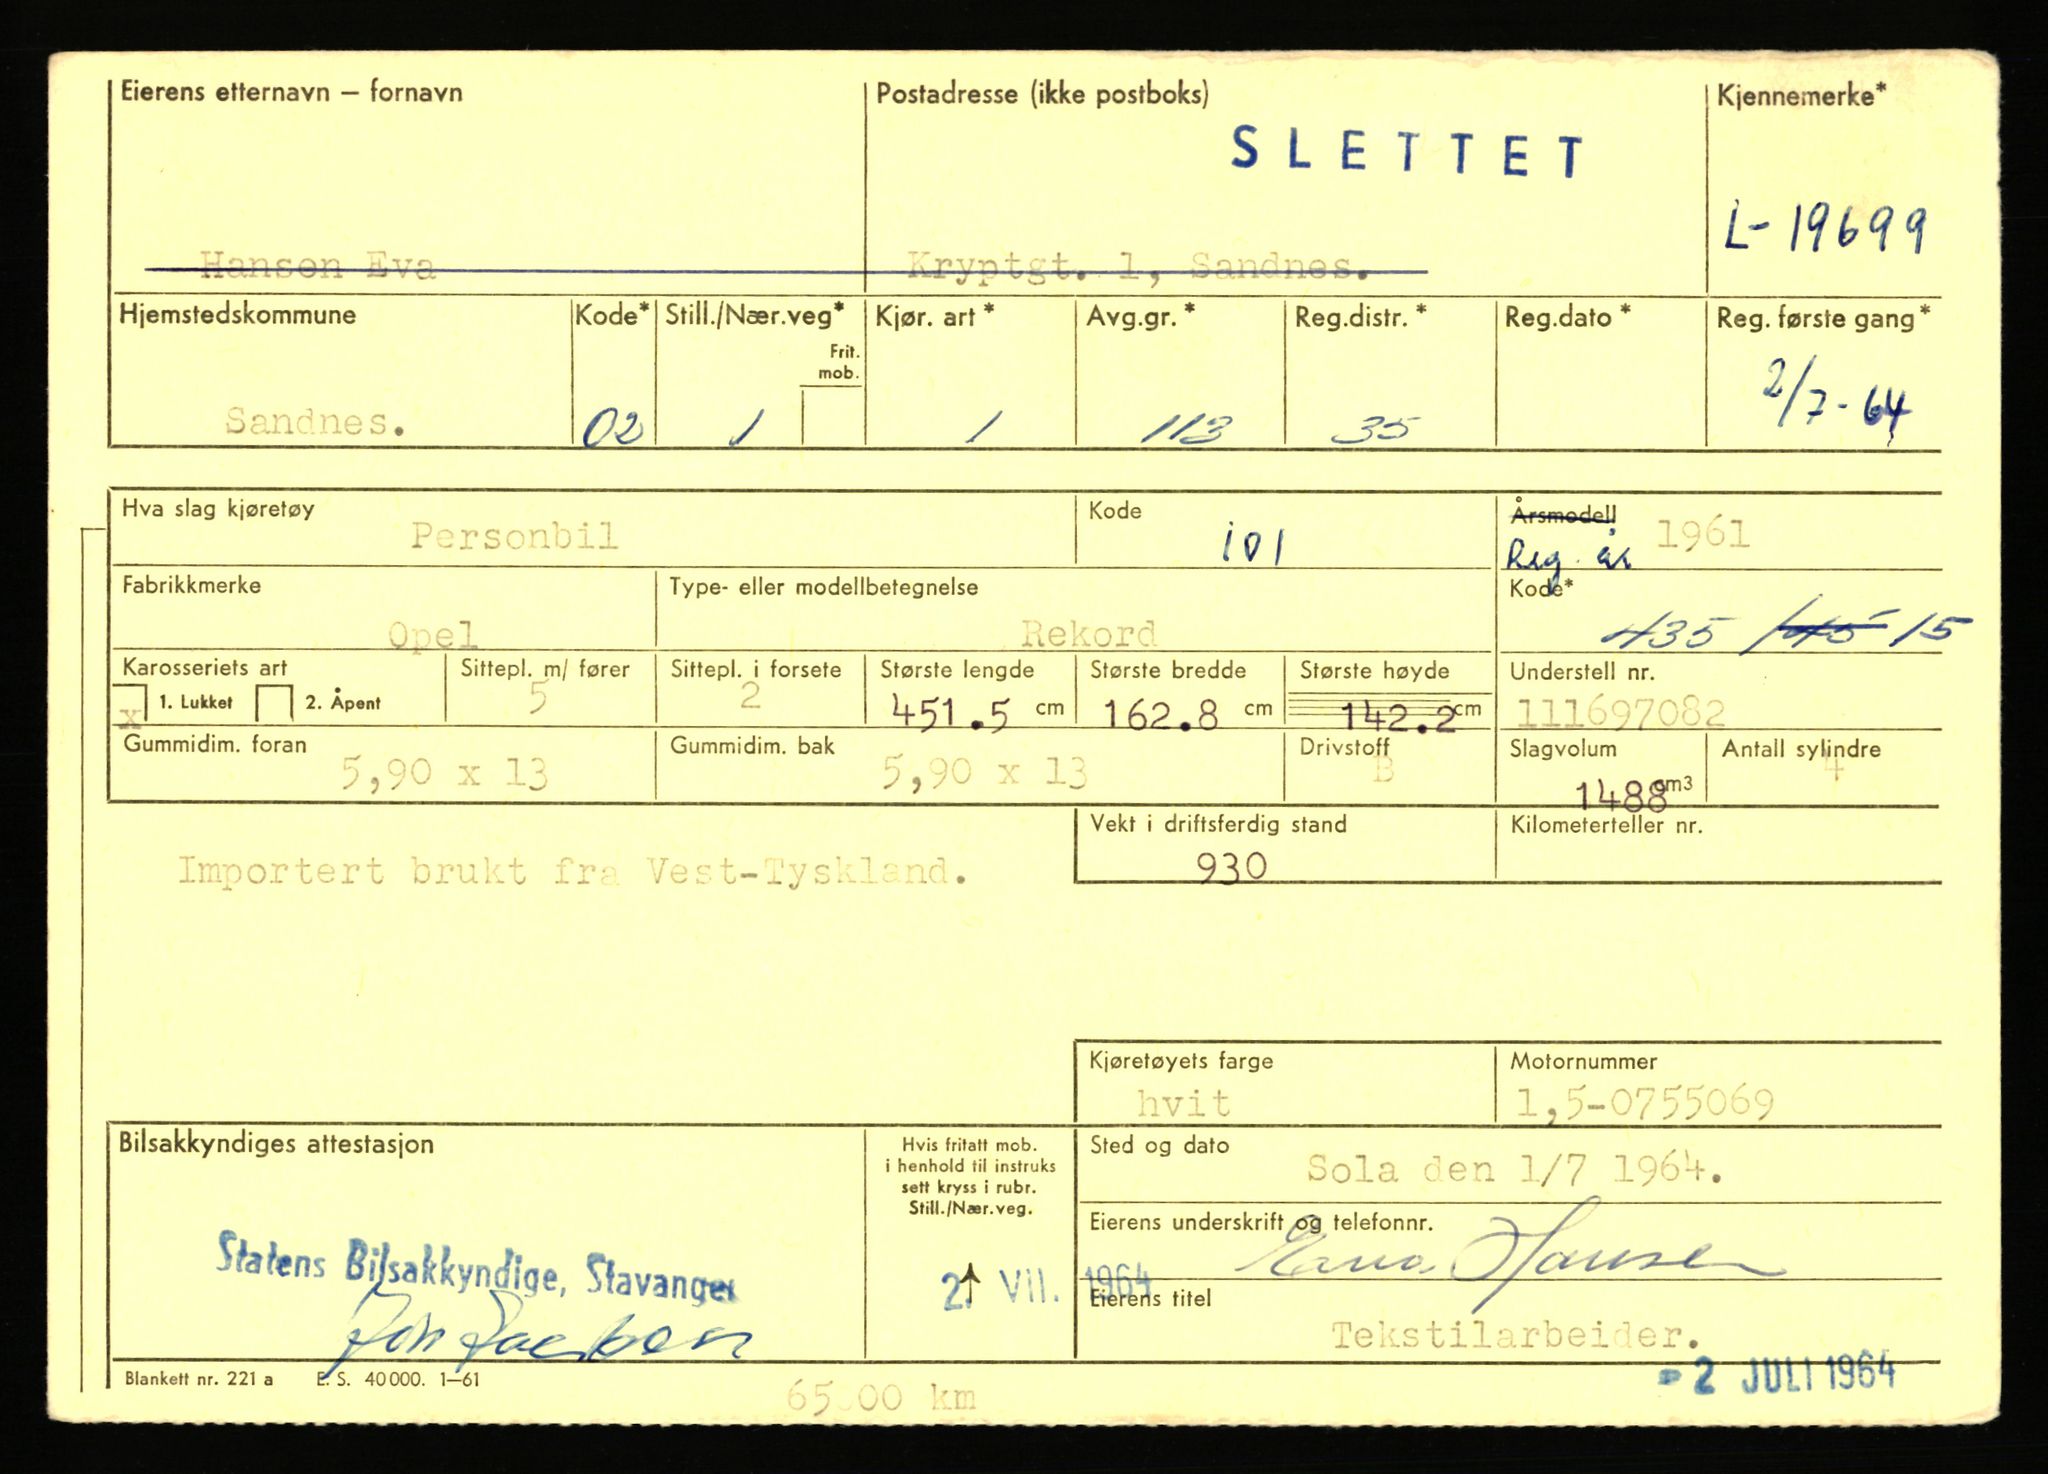 Eierens etternavn – fornavn
Postadresse (ikke postboks)
Kjennemerke*
SLETTET
L-19699
Hansen Eva
Kryptgt. 1, Sandnes.
Hjemstedskommune
Kode*
Still./Nær.veg*
Kjør. art *
Avg.gr. *
Reg.distr. *
Reg.dato *
Reg. første gang*
Frit.
mob.
2/7-64
Sandnes.
02
1
1
113
35
Hva slag kjøretøy
Personbil
Kode
101
Årsmodell
1961
Reg. år
Fabrikkmerke
Opel
Type- eller modellbetegnelse
Rekord
Kode*
435 145 15
Karosseriets art
Sittepl. m/ fører
Sittepl. i forsete
Største lengde
Største bredde
Største høyde
Understell nr.
x 1. Lukket
2. Åpent
5
2
451.5 cm
162.8 cm
142.2 cm
111697082
Gummidim. foran
5,90 x 13
Gummidim. bak
5,90 x 13
Drivstoff
B
Slagvolum
1488 cm3
Antall sylindre
4
Vekt i driftsferdig stand
930
Kilometerteller nr.
Importert brukt fra Vest-Tyskland.
Kjøretøyets farge
hvit
Motornummer
1,5-0755069
Bilsakkyndiges attestasjon
Hvis fritatt mob.
i henhold til instruks
sett kryss i rubr.
Still./Nær.veg.
Sted og dato
Sola den 1/7 1964.
Eierens underskrift og telefonnr.
Eva Hansen
Statens Bilsakkyndige, Stavanger
2. VII. 1964
Eierens titel
Tekstilarbeider.
Blankett nr. 221 a E. S. 40 000. 1–61
65000 km
- 2 JULI 1964